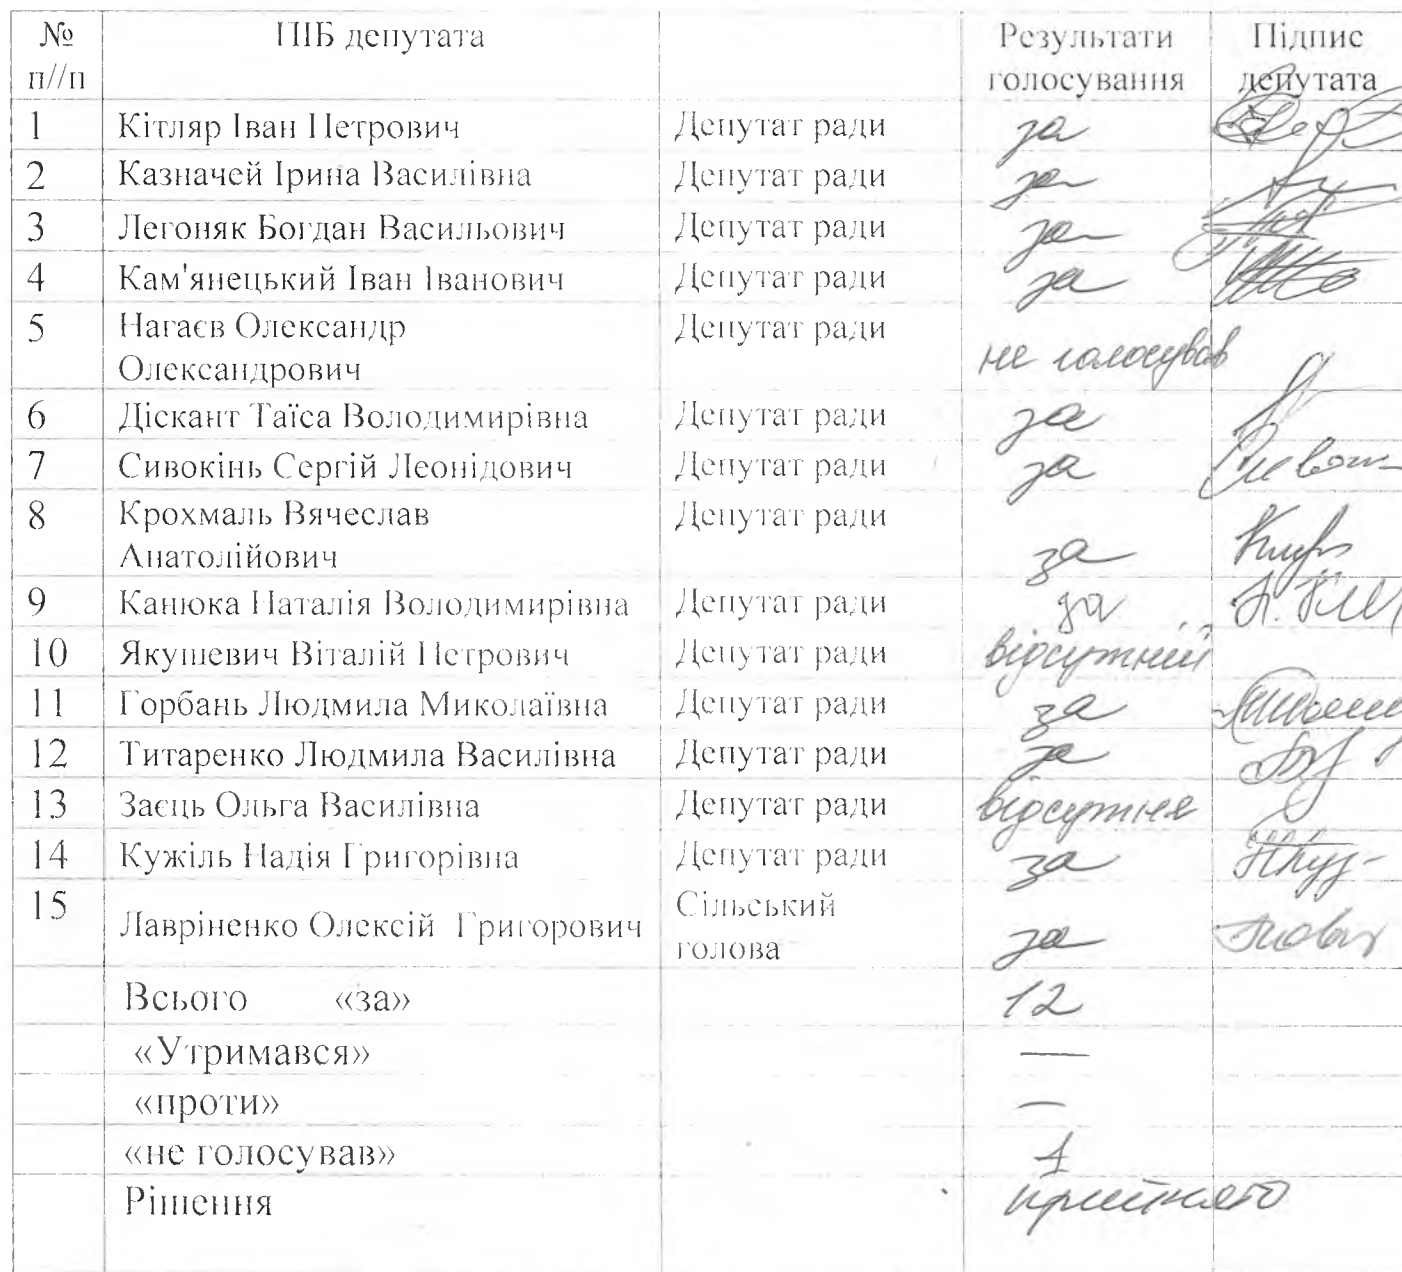 № ПІБ депутата Результати Підпис
п//п голосування депутата
1 Кітляр Іван Петрович Депутат ради за
2 Казначей Ірина Василівна Депутат ради за
3 Легоняк Богдан Васильович Депутат ради за
4 Кам'янецький Іван Іванович Депутат ради за
5 Нагаєв Олександр Депутат ради
Олександрович не голосував
6 Діскант Таїса Володимирівна Депутат ради за
7 Сивокінь Сергій Леонідович Депутат ради за
8 Крохмаль Вячеслав Депутат ради
Анатолійович за
9 Канюка Наталія Володимирівна Депутат ради за
10 Якушевич Віталій Петрович Депутат ради відсутній
11 Горбань Людмила Миколаївна Депутат ради за
12 Титаренко Людмила Василівна Депутат ради за
13 Заєць Ольга Василівна Депутат ради відсутня
14 Кужіль Надія Григорівна Депутат ради за
15 Лавріненко Олексій Григорович Сільський
голова за
Всього «за» 12
«Утримався» —
«проти» —
«не голосував» 1
Рішення прийнято